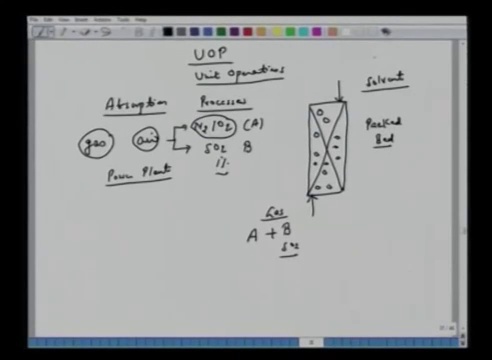 UOP
Unit Operations
Absorption
Processes
Solvent
gas
air
N2/O2 (A)
SO2 B
1%
Power Plant
Packed
Bed
Gas
A + B
SO2